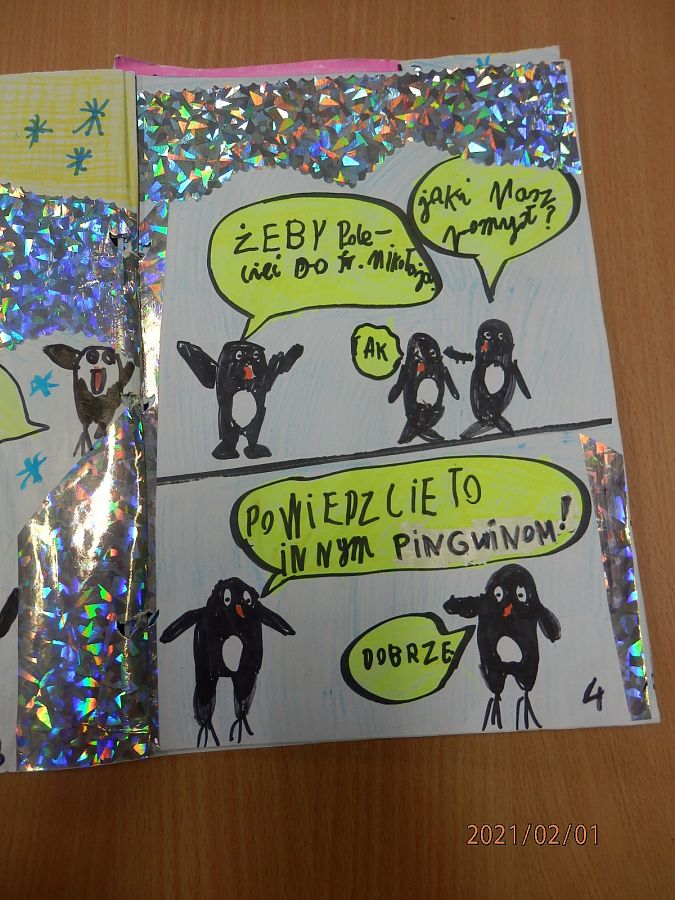 ŻEBY Pole-
cieć DO św. Mikołaja
jaki Masz
pomysł?
AK
POWIEDZCIE TO
iNNYM PiNGWiNOM!
DOBRZE
4
2021/02/01